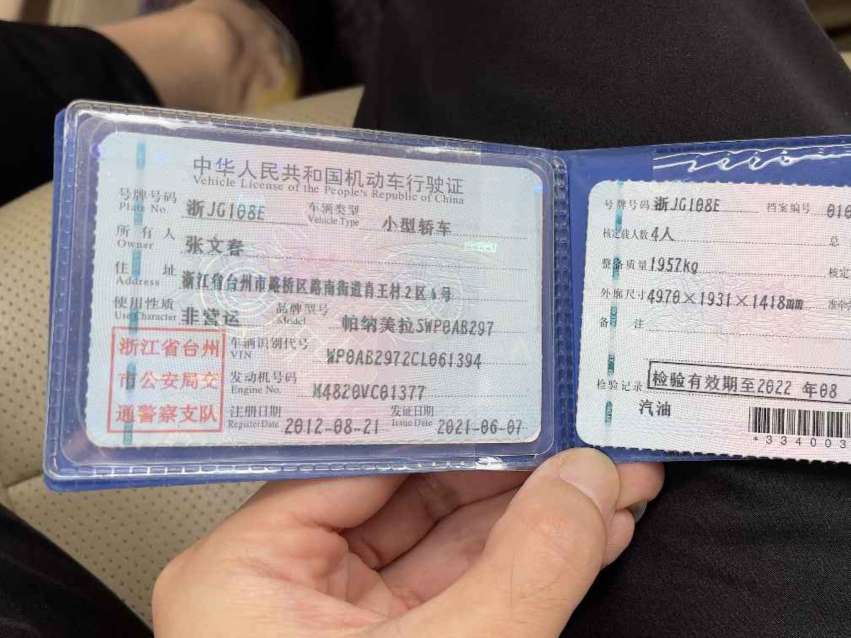 中华人民共和国机动车行驶证
Vehicle License of the People's Republic of China
号牌号码 浙JG108E 车辆类型 小型轿车
Plate No. Vehicle Type
所有人 张文春
Owner
住址 浙江省台州市路桥区路南街道肖王村2区6号
Address
使用性质 非营运 品牌型号 帕纳美拉SWP0AB297
Use Character Model
浙江省台州
市公安局交
通警察支队
车辆识别代号 WP0AB2972CL061394
VIN
发动机号码 M4820VC01377
Engine No.
注册日期 2012-08-21 发证日期 2021-06-07
Register Date Issue Date
号牌号码 浙JG108E 档案编号 010
核定载人数 4人 总
整备质量 1957kg 核定
外廓尺寸 4970×1931×1418mm 准牵
备注
检验记录 检验有效期至2022年08
汽油
*334003